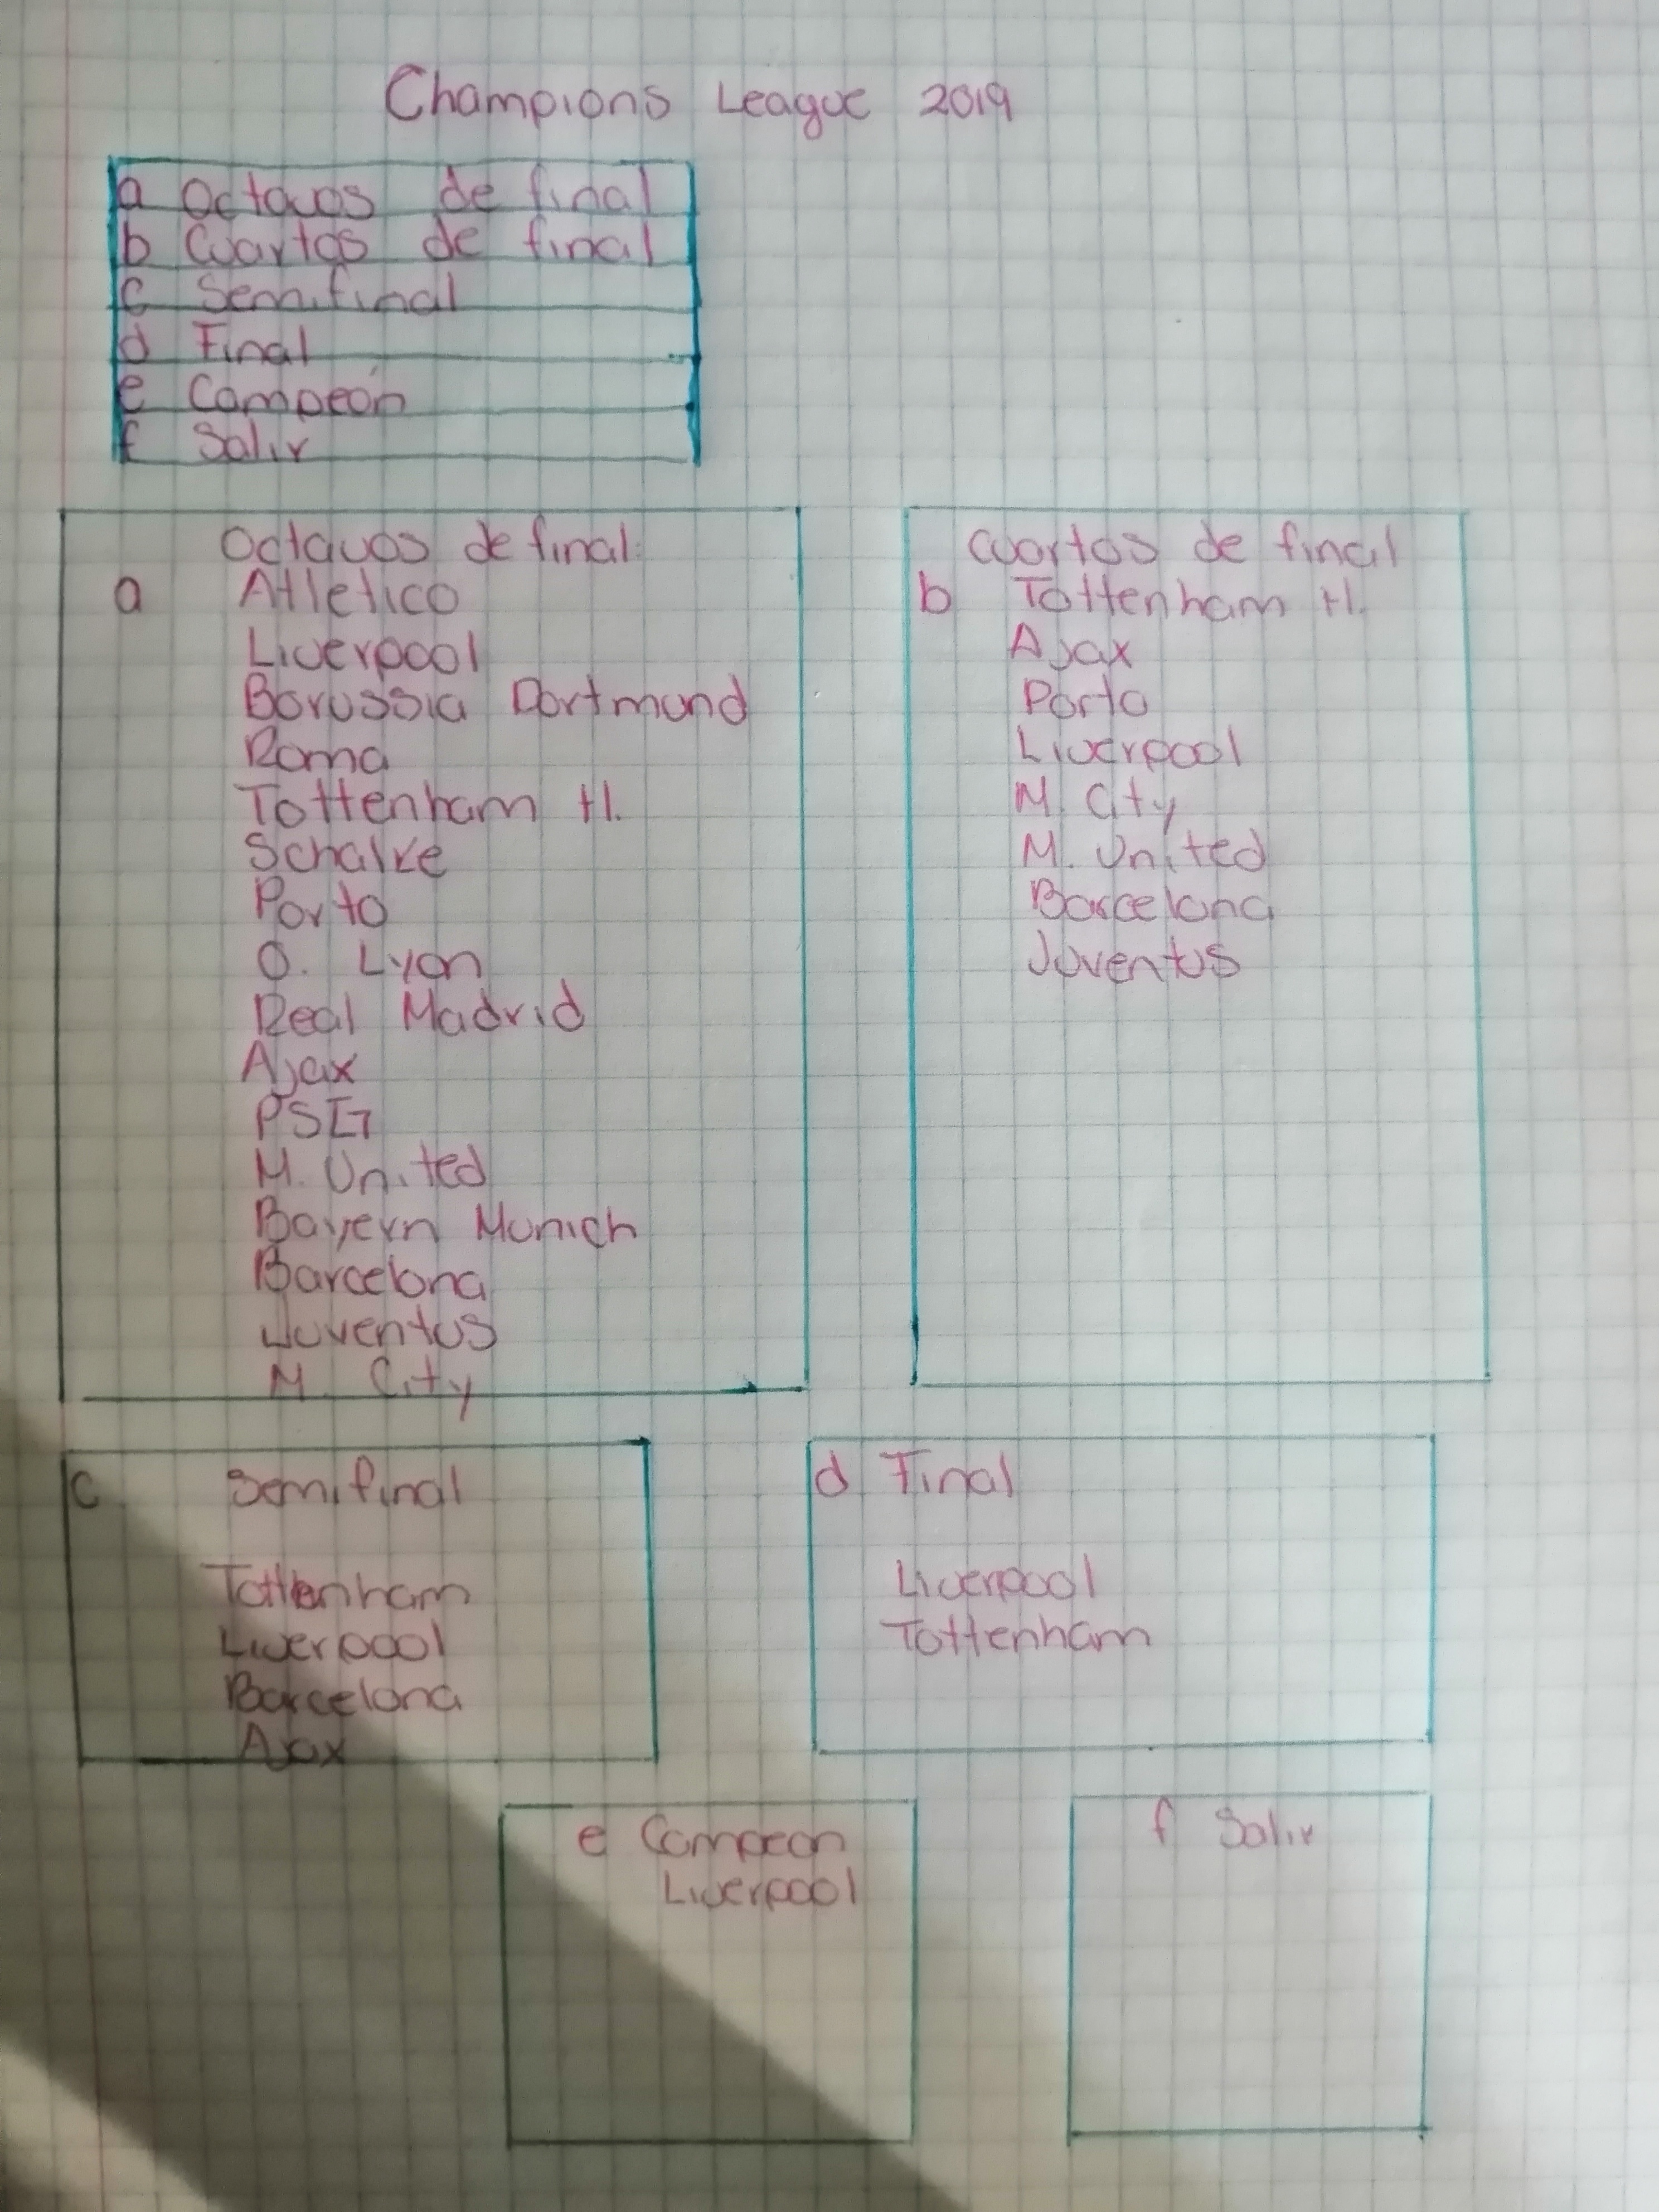 Champions League 2019
a Octavos de final
b Cuartos de final
c Semifinal
d Final
e Campeón
f Salir
Octavos de final:
a Atletico
Liverpool
Borussia Dortmund
Roma
Tottenham H.
Schalke
Porto
O. Lyon
Real Madrid
Ajax
PSG
M. United
Bayern Munich
Barcelona
Juventus
M. City
Cuartos de final
b Tottenham H.
Ajax
Porto
Liverpool
M. City
M. United
Barcelona
Juventus
c Semifinal
Tottenham
Liverpool
Barcelona
Ajax
d Final
Liverpool
Tottenham
e Campeon
Liverpool
f Salir